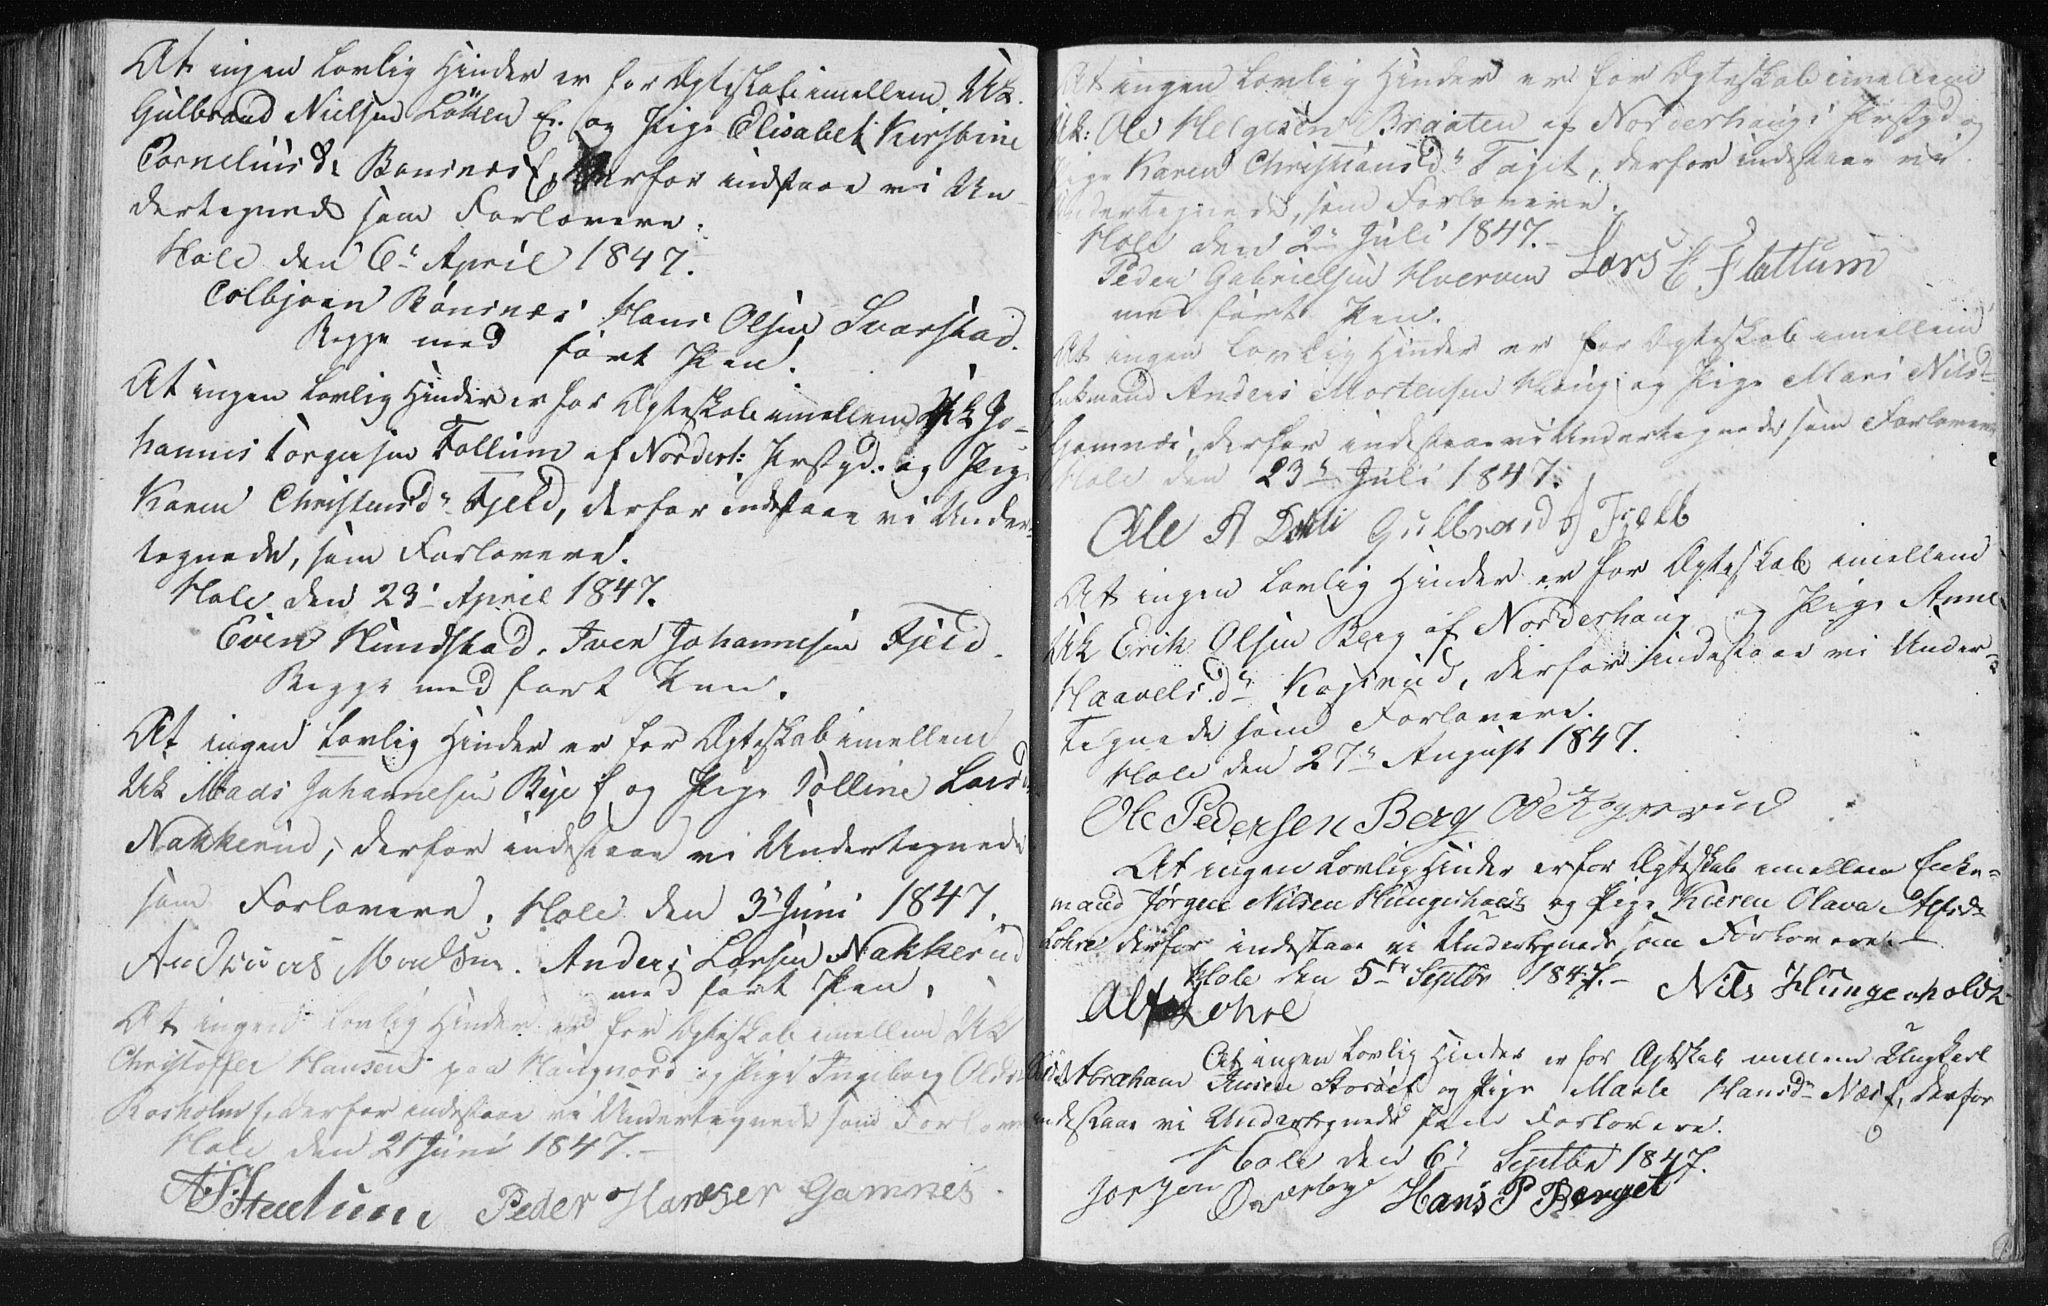 At ingen Lovlig Hinder er for Ægteskab imellem UK.
Gulbrand Nielsen Löken E. og Pige Elisabet Kirstine
Corneliusd. Bønsnes E, derfor indstaae vi Un-
dertegnede som Forlovere.
Hole den 6te April 1847.
Colbjørn Bönsnes Hans Olsen Svarstad.
Begge med ført Pen.
At ingen Lovlig Hinder er for Ægteskab imellem UK Jo-
hannes Torgersen Follum af Norderh: Præstgd. og Pige
Karen Christensd. Fjeld, derfor indstaae vi Under-
tegnede, som Forlovere.
Hole den 23 April 1847.
Even Hundstad. Iver Johannesen Fjeld.
Begge med ført Pen.
At ingen Lovlig Hinder er for Ægteskab imellem
UK Mads Johannesen Bye E og Pige Tolline Larsd.
Nakkerud, derfor indestaae vi Undertegnede
som Forlovere. Hole den 3 Juni 1847.
Andreas Madsen. Anders Larsen Nakkerud
med ført Pen.
At ingen Lovlig Hinder er for Ægteskab imellem UK
Christoffer Hansen paa Haugnord og Pige Ingeborg Olsd.
Rosholm f, derfor indestaae vi Undertegnede som Forlovere
Hole den 21 Juni 1847.
Peder Hanser Gamnes
At ingen Lovlig Hinder er for Ægteskab imellem
UK: Ole Helgesen Braaten af Norderhaugs Præstgd og
Pige Karen Christiansd. , derfor indestaae vi
Undertegnede, som Forlovere.
Hole den 2 Juli 1847.
Peder Gabrielsen Hverven Lars E Flattum
med ført Pen.
At ingen Lovlig Hinder er for Ægteskab imellem
Enkemand Anders Mortensen Haug og Pige Mari Nilsd
Gamnes, derfor indestaae vi Undertegnede som Forlovere
Hole den 23 Juli 1847.
Ole A Gulbrand J Fjeld
At ingen Lovlig Hinder er for Ægteskab imellem
UK Erik Olsen Berg af Norderhaug og Pige Anne
Haavelsd. Kogsrud, derfor indestaae vi Under-
tegnede som Forlovere.
Hole den 27 August 1847.
Ole Pedersen Berg Ole Kogsrud
At ingen Lovlig Hinder er for Ægteskab imellem Enke-
mand Jørgen Nilsen Hungerholt og Pige Karen Olava Alfsd
Lohre derfor indestaae vi Undertegnede som Forlovere.
Hole den 5te Septbr 1847. Nils Hungerholdt
Alf Lohre
At ingen Lovlig Hinder er for Ægteskab mellem Ungkarl
Abraham Jensen Storøen og Pige Marte Hansd Næs f, derfor
indestaae vi Undertegnede som Forlovere.
Hole den 6 Septbr 1847.
Jørgen Hans P Berget